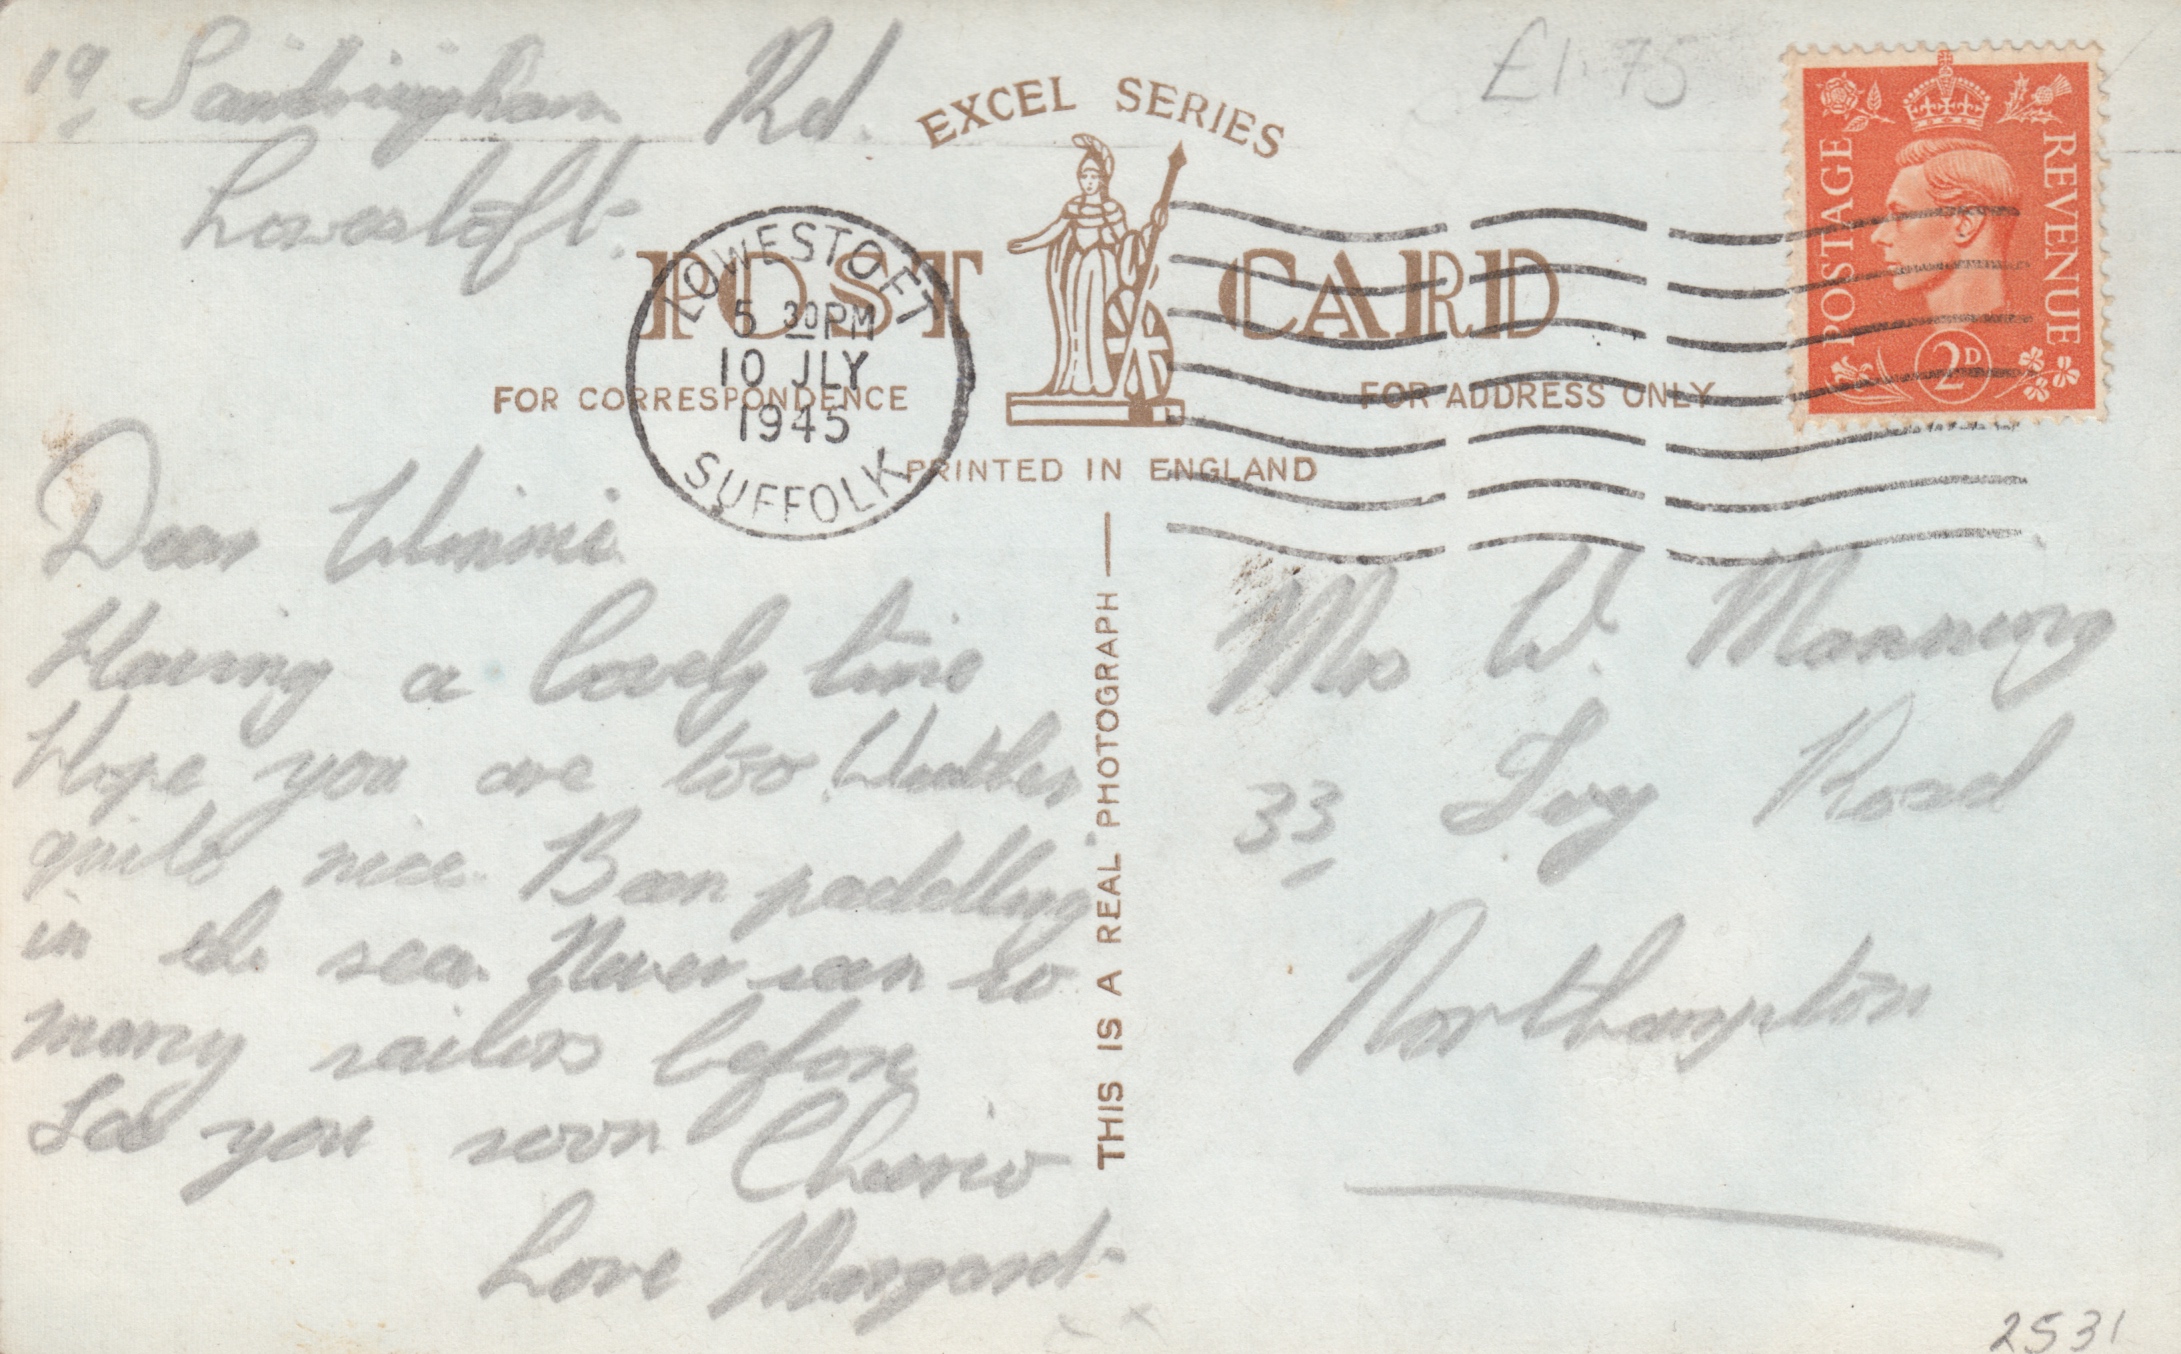 19, Sandringham Rd.
Lowestoft.
£1.75
EXCEL SERIES
POST CARD
FOR CORRESPONDENCE
FOR ADDRESS ONLY
PRINTED IN ENGLAND
LOWESTOFT
5 30 PM
10 JLY
1945
SUFFOLK
POSTAGE
REVENUE
2D
Dear Winnie
Having a lovely time
Hope you are too. Weather
quite nice. Been paddling
in the sea. Never seen so
many sailors before
See you soon Cheerio
Love Margaret
x x
THIS IS A REAL PHOTOGRAPH
Mrs W. Manning
33, Ivy Road
Northampton
2531